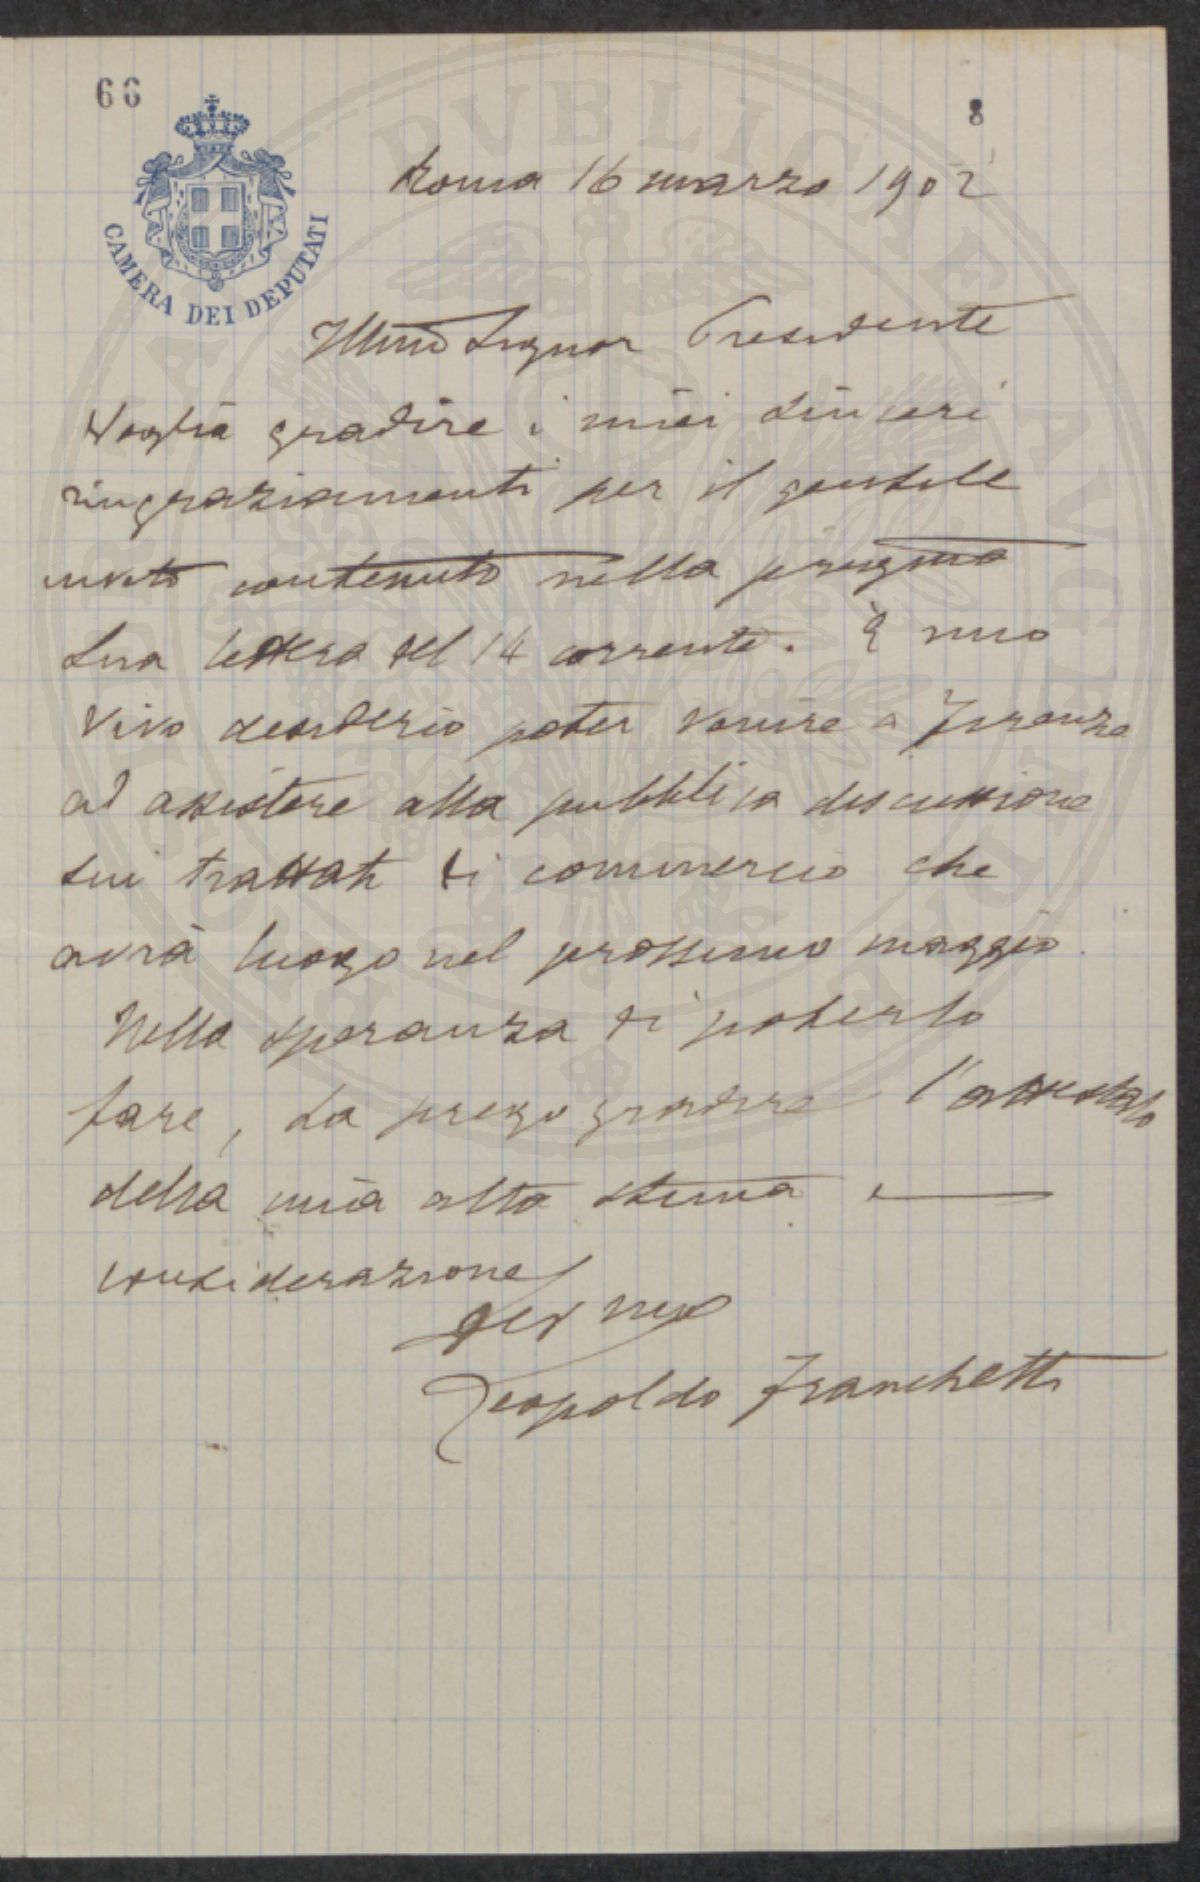 66
8
CAMERA DEI DEPUTATI
Roma 16 marzo 1902
Illmo Signor Presidente
Voglia gradire i miei sinceri
ringraziamenti per il gentile
invito contenuto nella pregma
Sua lettera del 14 corrente. È mio
vivo desiderio poter venire a Firenze
ad assistere alla pubblica discussione
sui trattati di commercio che
avrà luogo nel prossimo maggio.
Nella speranza di poterlo
fare, La prego gradire l'attestato
della mia alta stima e
considerazione
Leopoldo Franchetti